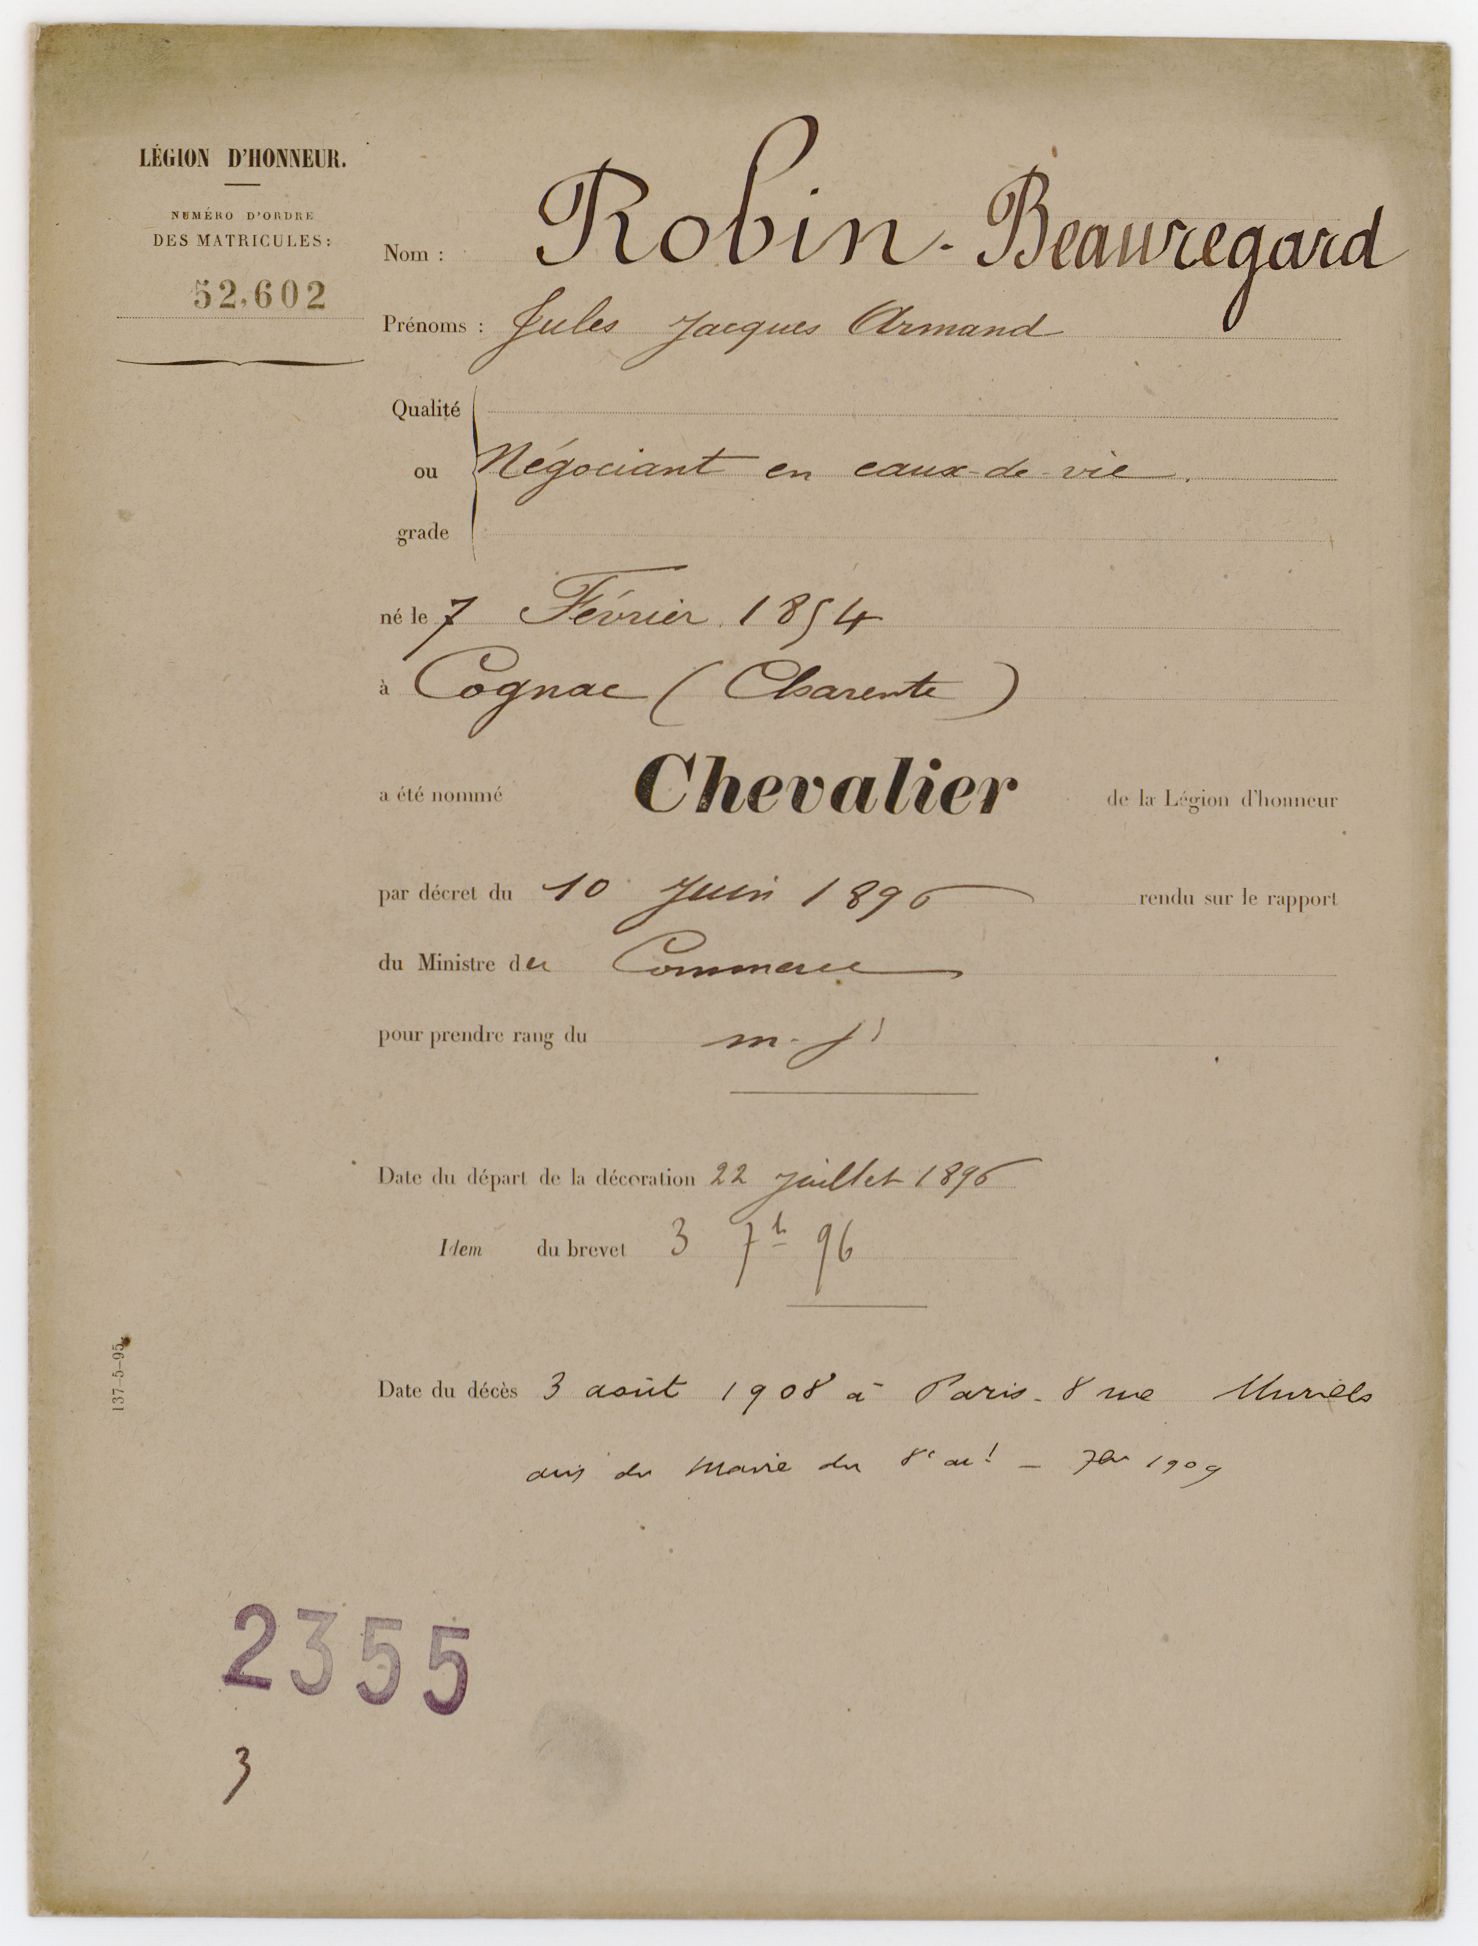 LÉGION D'HONNEUR.
NUMÉRO D'ORDRE
DES MATRICULES:
52,602
Nom : Robin-Beauregard
Prénoms : Jules Jacques Armand
Qualité
ou Négociant en eaux-de-vie.
grade
né le 7 Février 1854
à Cognac (Charente)
a été nommé Chevalier de la Légion d'honneur
par décret du 10 Juin 1896 rendu sur le rapport
du Ministre du Commerce
pour prendre rang du m. j^r
Date du départ de la décoration 22 Juillet 1896
Idem du brevet 3 7b 96
Date du décès 3 août 1908 à Paris - 8 rue
avis du Maire du 8e art - 7br 1909
137-5-95.
2355
3